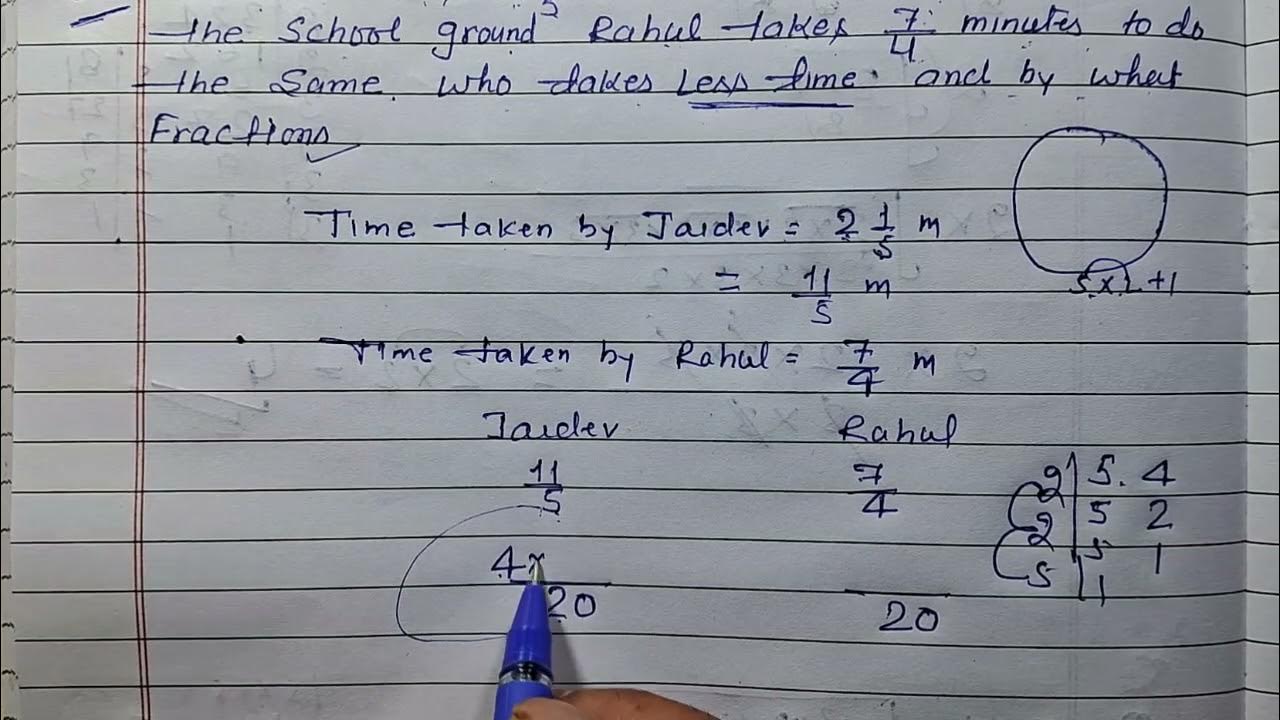 the School ground? Rahul takes 7/4 minutes to do
the Same. Who takes Less time. and by what
Fractions
Time taken by Jaidev = 2 1/5 m
= 11/5 m
5 x 2 + 1
Time taken by Rahul = 7/4 m
Jaidev Rahul
11/5 7/4
2 | 5. 4
2 | 5 2
5 | 5 1
1
4x
20 20